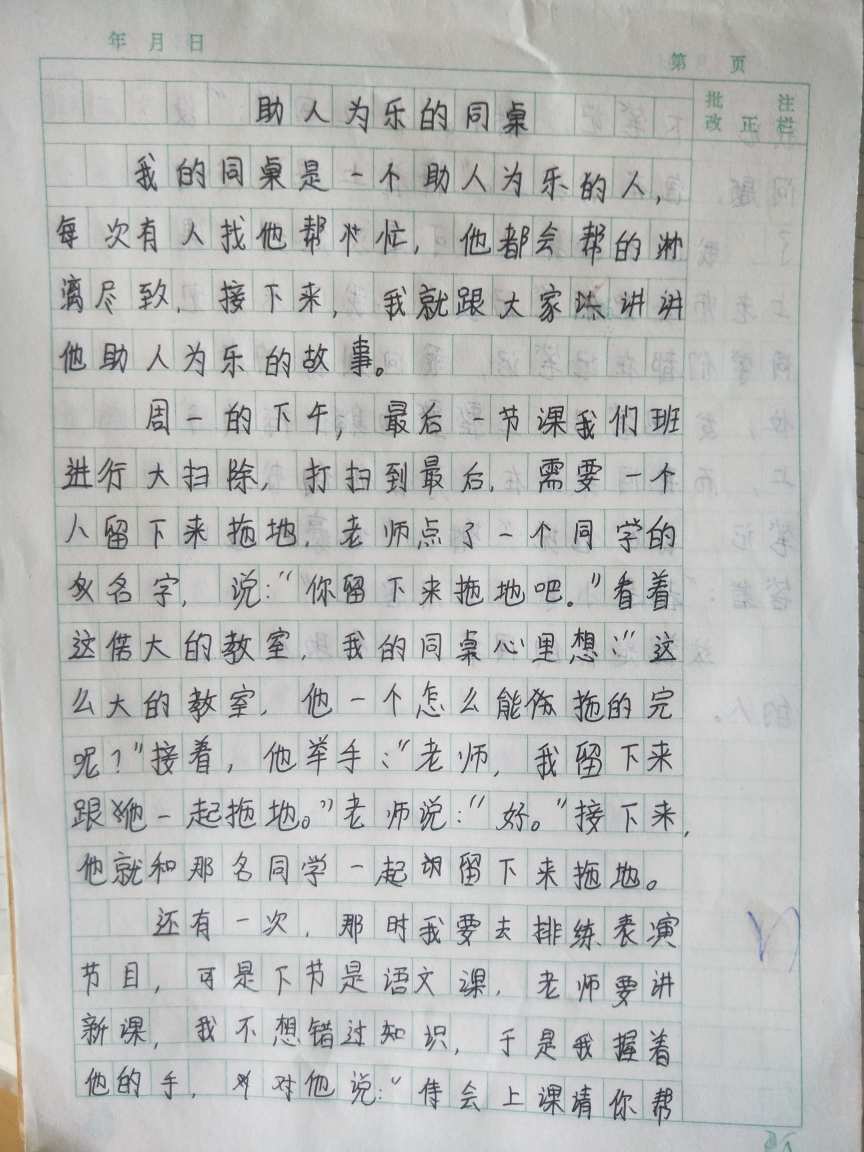 年 月 日
第 页
批 注
改 正 栏
助人为乐的同桌
我的同桌是一个助人为乐的人，
每次有人找他帮忙，他都会帮的淋
漓尽致，接下来，我就跟大家讲讲
他助人为乐的故事。
周一的下午，最后一节课我们班
进行大扫除，打扫到最后，需要一个
人留下来拖地，老师点了一个同学的
名字，说：“你留下来拖地吧。”看着
这偌大的教室，我的同桌心里想：“这
么大的教室，他一个怎么能拖的完
呢？”接着，他举手：“老师，我留下来
跟他一起拖地。”老师说：“好。”接下来，
他就和那名同学一起留下来拖地。
还有一次，那时我要去排练表演
节目，可是下节是语文课，老师要讲
新课，我不想错过知识，于是我握着
他的手，对他说：“待会上课请你帮